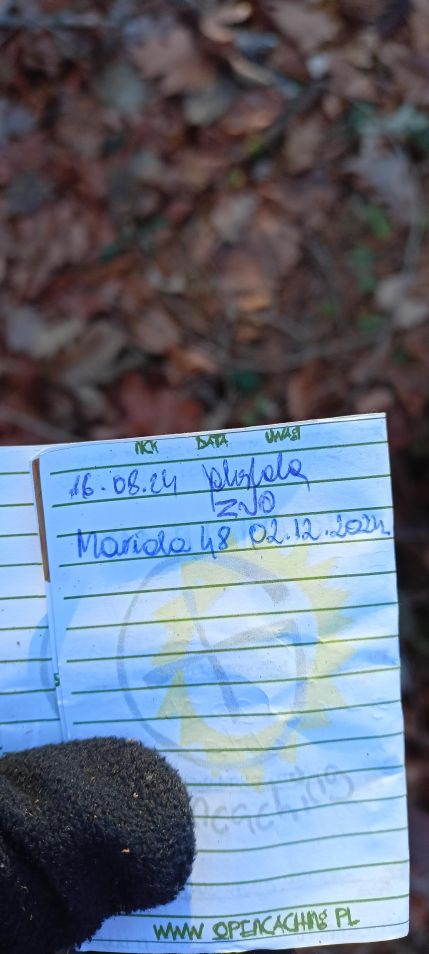 NICK DATA UWAGI
16.08.24
ZWO
Mariola 48 02.12.2024
opencaching
WWW OPENCACHING PL